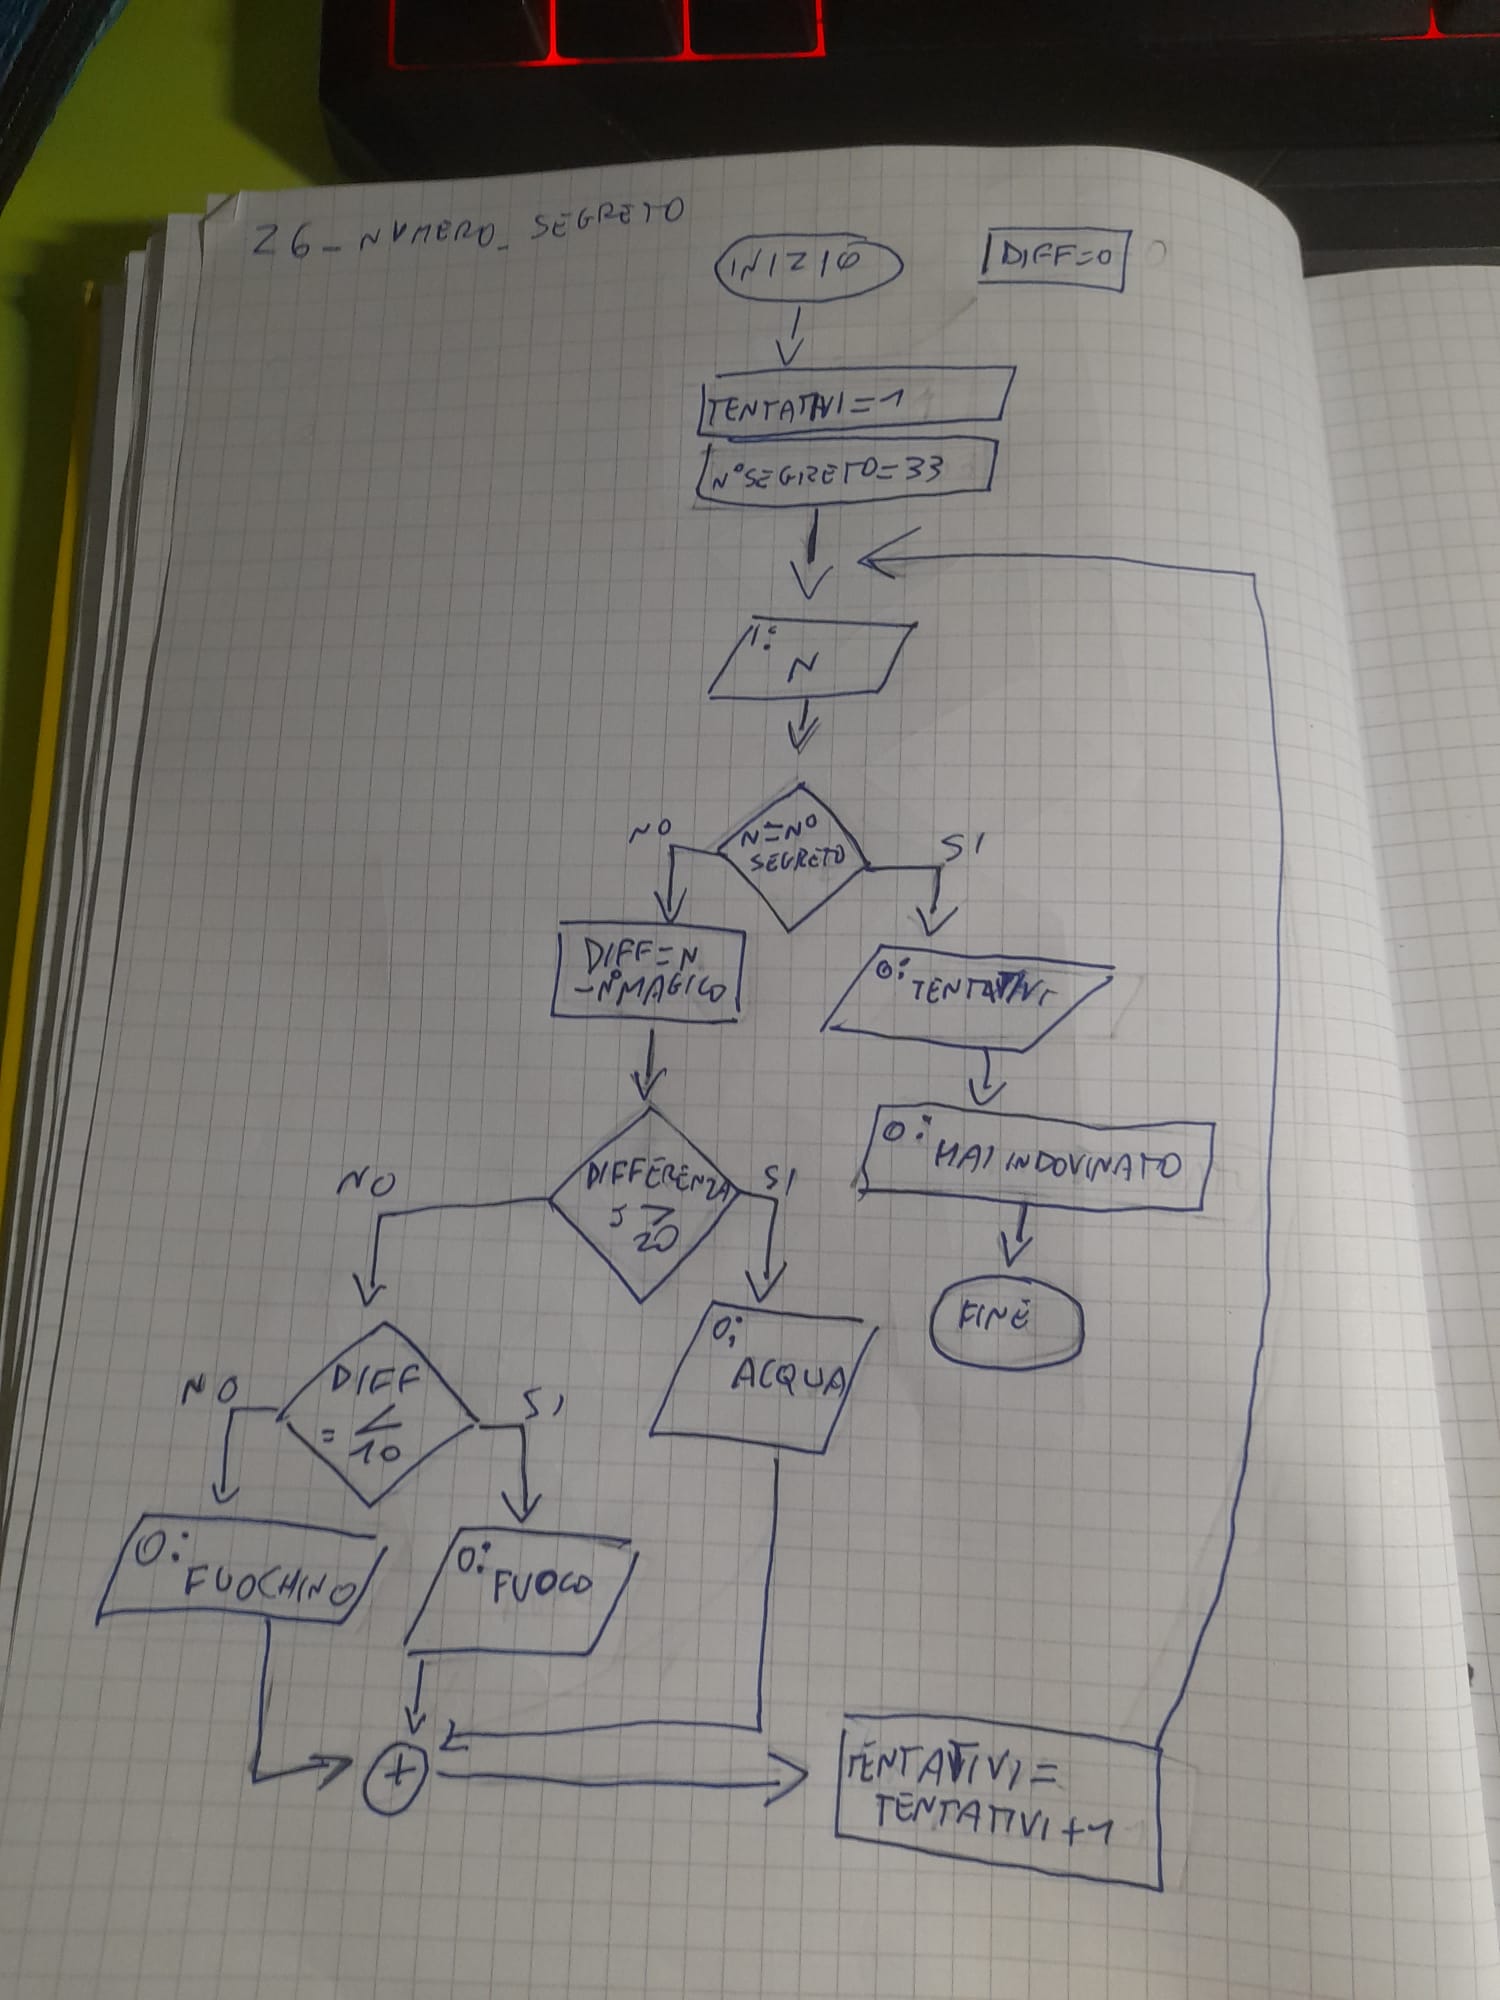 26_NUMERO_SEGRETO
INIZIO
DIFF=0
TENTATIVI=1
N°SEGRETO=33
I:
N
N=N°
SEGRETO
NO
SI
DIFF=N
-N°MAGICO
O: TENTATIVI
O: HAI INDOVINATO
FINE
DIFFERENZA
>
20
NO
SI
O:
ACQUA
DIFF
= <
10
NO
SI
O: FUOCHINO
O: FUOCO
+
TENTATIVI=
TENTATIVI+1